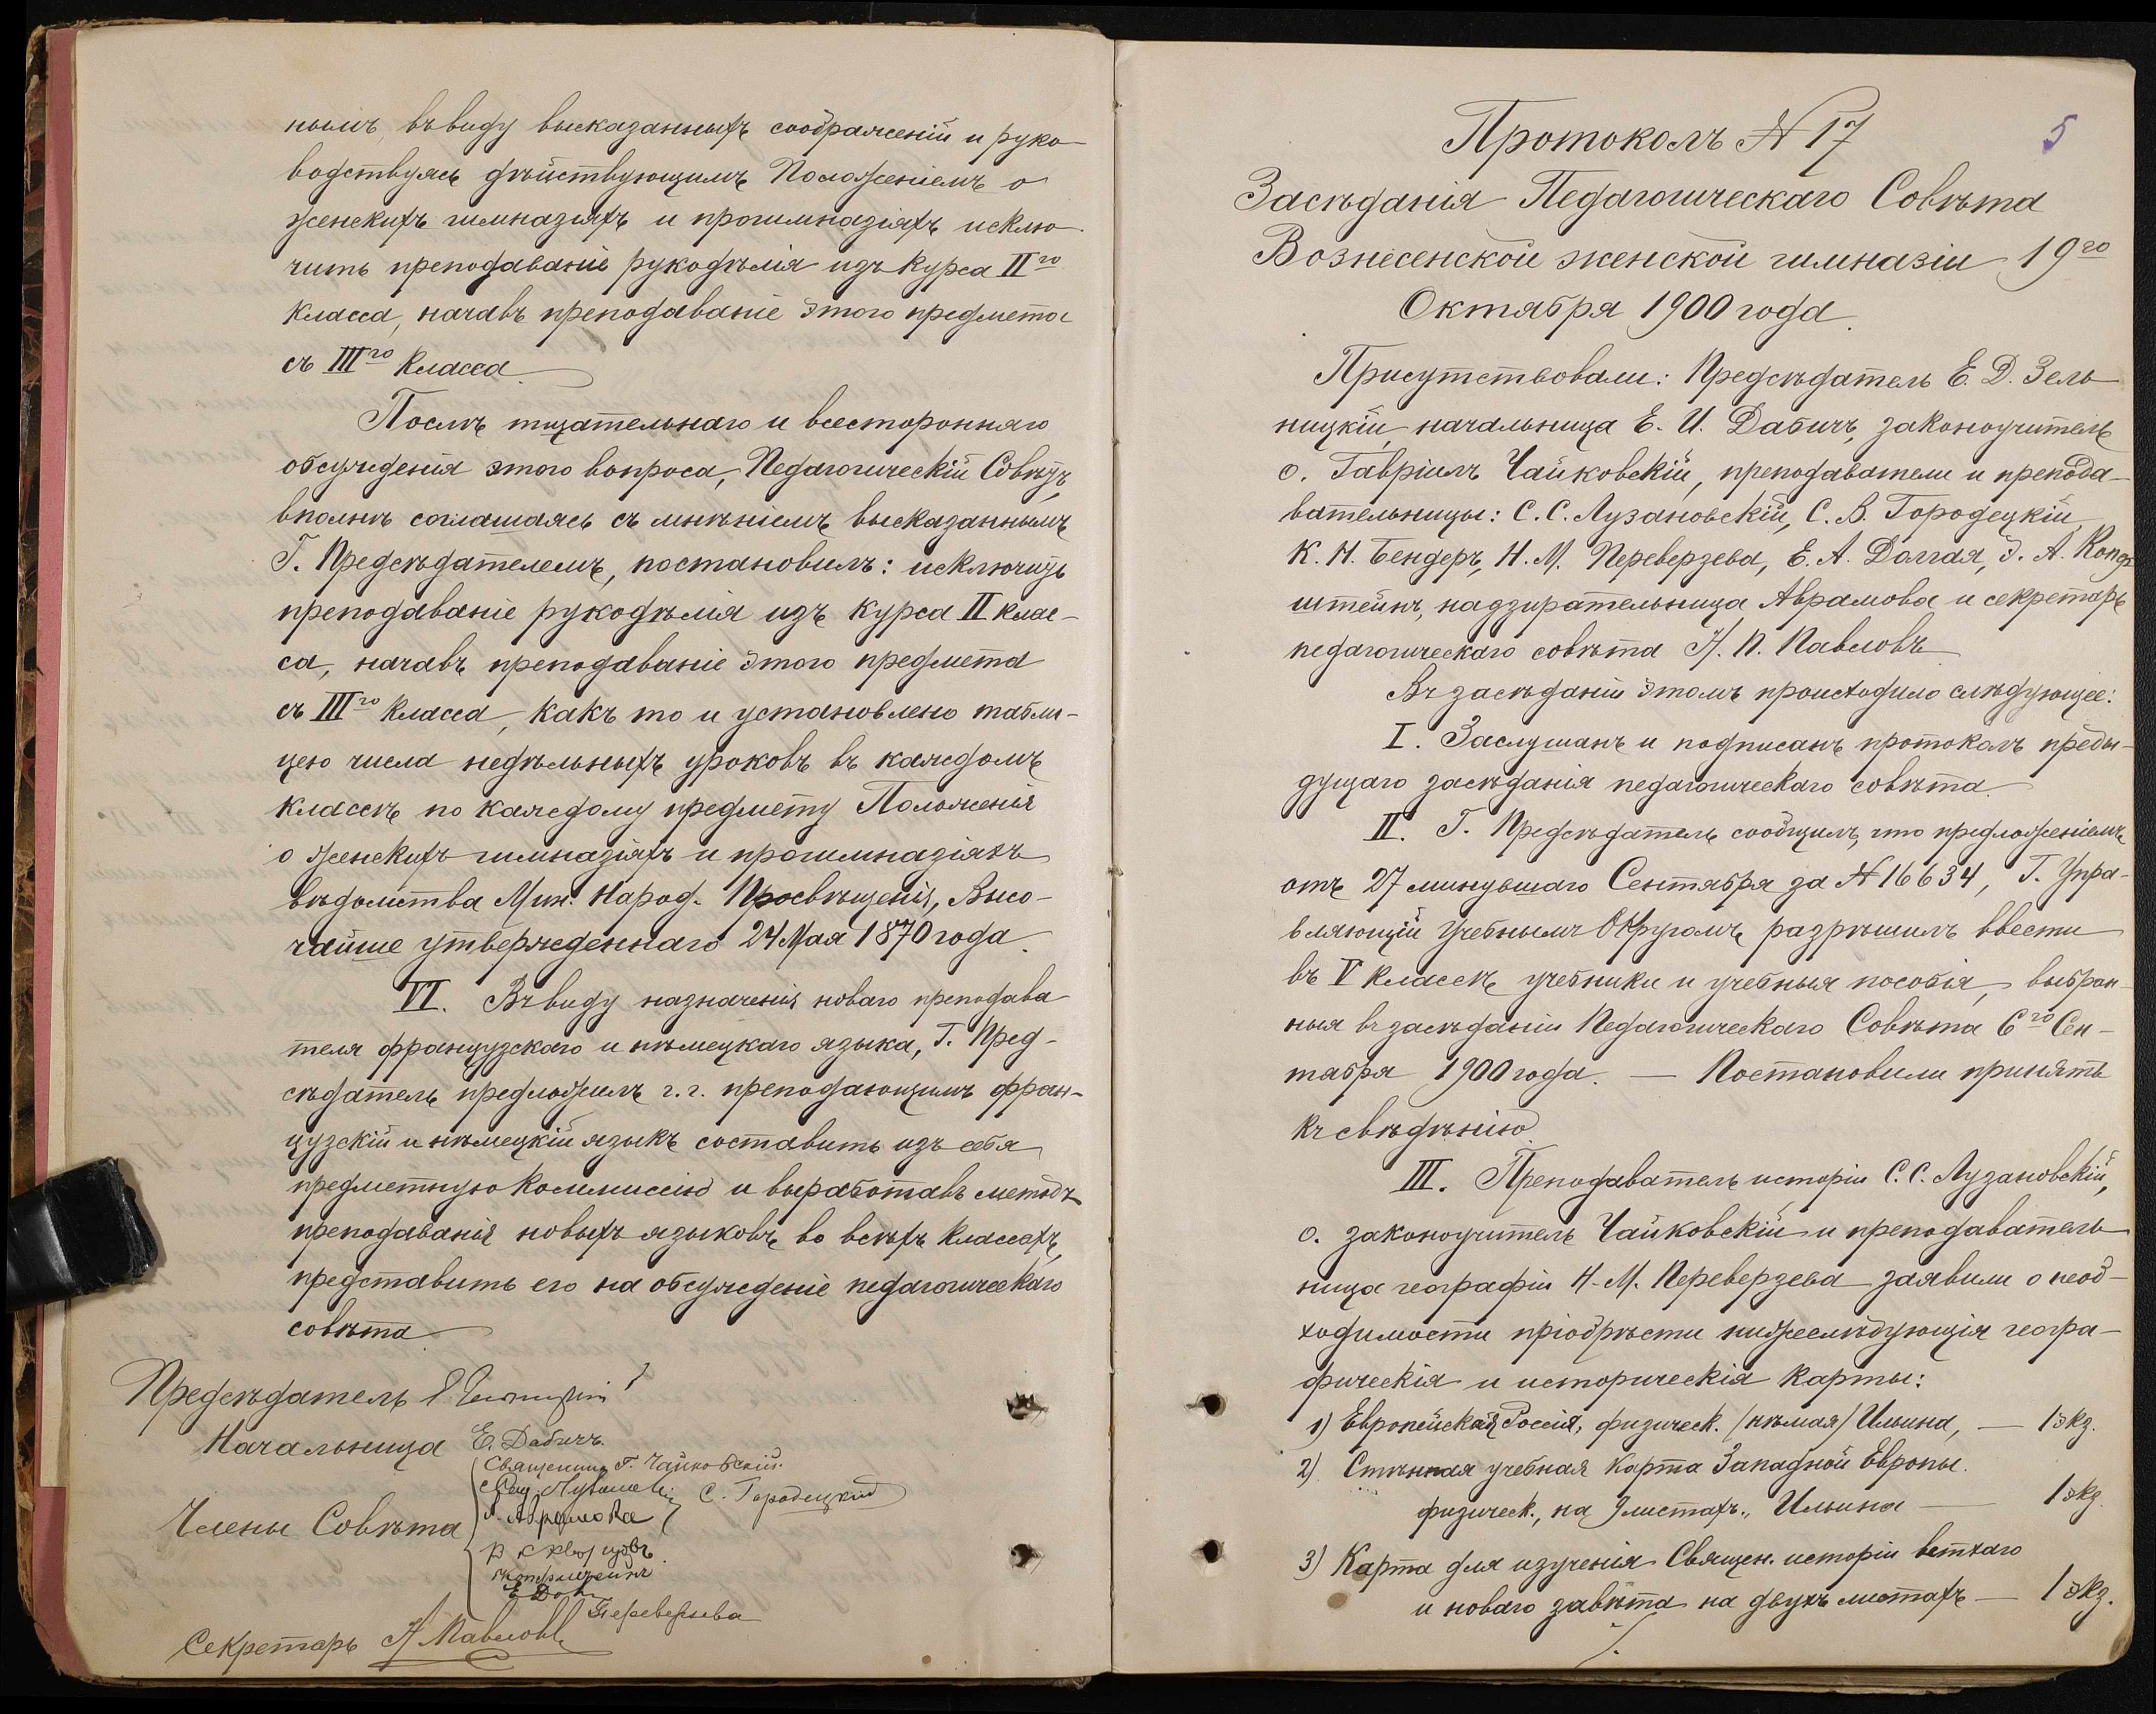 нымъ, въ виду высказанныхъ соображеній и руко-
водствуясь дѣйствующимъ Положеніемъ о
женскихъ гимназіяхъ и прогимназіяхъ исклю-
чить преподаваніе рукодѣлія изъ курса II го
класса, начавъ преподаваніе этого предмета
съ III го класса.
Послѣ тщательнаго и всесторонняго
обсужденія этого вопроса, Педагогическій Совѣтъ,
вполнѣ соглашаясь съ мнѣніемъ высказаннымъ
Г. Предсѣдателемъ, постановилъ: исключить
преподаваніе рукодѣлія изъ курса II клас-
са, начавъ преподаваніе этого предмета
съ III го класса, какъ то и установлено табли-
цею числа недѣльныхъ уроковъ въ каждомъ
классѣ по каждому предмету Положенія
о женскихъ гимназіяхъ и прогимназіяхъ
вѣдомства Мин. Народ. Просвѣщенія, Высо-
чайше утвержденнаго 24 Мая 1870 года.
VI. Въ виду назначенія новаго преподава-
теля французскаго и нѣмецкаго языка, Г. Пред-
сѣдатель предложилъ г.г. преподающимъ фран-
цузскій и нѣмецкій языкъ составить изъ себя
предметную коммиссію и выработавъ методъ
преподаванія новыхъ языковъ, во всѣхъ классахъ,
представить его на обсужденіе педагогическаго
совѣта
Предсѣдатель
Начальница Е. Дабичъ.
Священникъ Г. Чайковскій.
С. Городецкій
А. Аврамова
Члены Совѣта
Переверзева
Секретарь Н Павловъ
5
Протоколъ № 17
Засѣданія Педагогическаго Совѣта
Вознесенской женской гимназіи 19 го
Октября 1900 года.
Присутствовали: Предсѣдатель Е. Д. Зель-
ницкій, начальница Е. И. Дабичъ, законоучитель
о. Гавріилъ Чайковскій, преподаватели и препода-
вательницы: С. С. Лузановскій, С. В. Городецкій,
К. Н. Бендеръ, Н. М. Переверзева, Е. А. Долгая, Э. А.
штейнъ, надзирательница Аврамова и секретарь
педагогическаго совѣта Н. П. Павловъ
Въ засѣданіи этомъ происходило слѣдующее:
I. Заслушанъ и подписанъ протоколъ преды-
дущаго засѣданія педагогическаго совѣта.
II. Г. Предсѣдатель сообщилъ, что предложеніемъ
отъ 27 минувшаго Сентября за № 16634, Г. Упра-
вляющій Учебнымъ Округомъ, разрѣшилъ ввести
въ V классѣ учебники и учебныя пособія, выбран-
ныя въ засѣданіи Педагогическаго Совѣта 6 го Сен-
тября 1900 года. — Постановили принять
къ свѣдѣнію.
III. Преподаватель исторіи С. С. Лузановскій,
о. законоучитель Чайковскій и преподаватель-
ница географіи Н. М. Переверзева заявили о необ-
ходимости пріобрѣсти нижеслѣдующія геогра-
фическія и историческія карты:
1) Европейская Россія, физическ. /нѣмая/ Ильина, — 1 экз.
2) Стѣнная учебная карта Западной Европы.
физическ., на 9 листахъ., Ильина — 1 экз.
3) Карта для изученія Священ. исторіи ветхаго
и новаго завѣта на двухъ листахъ — 1 экз.